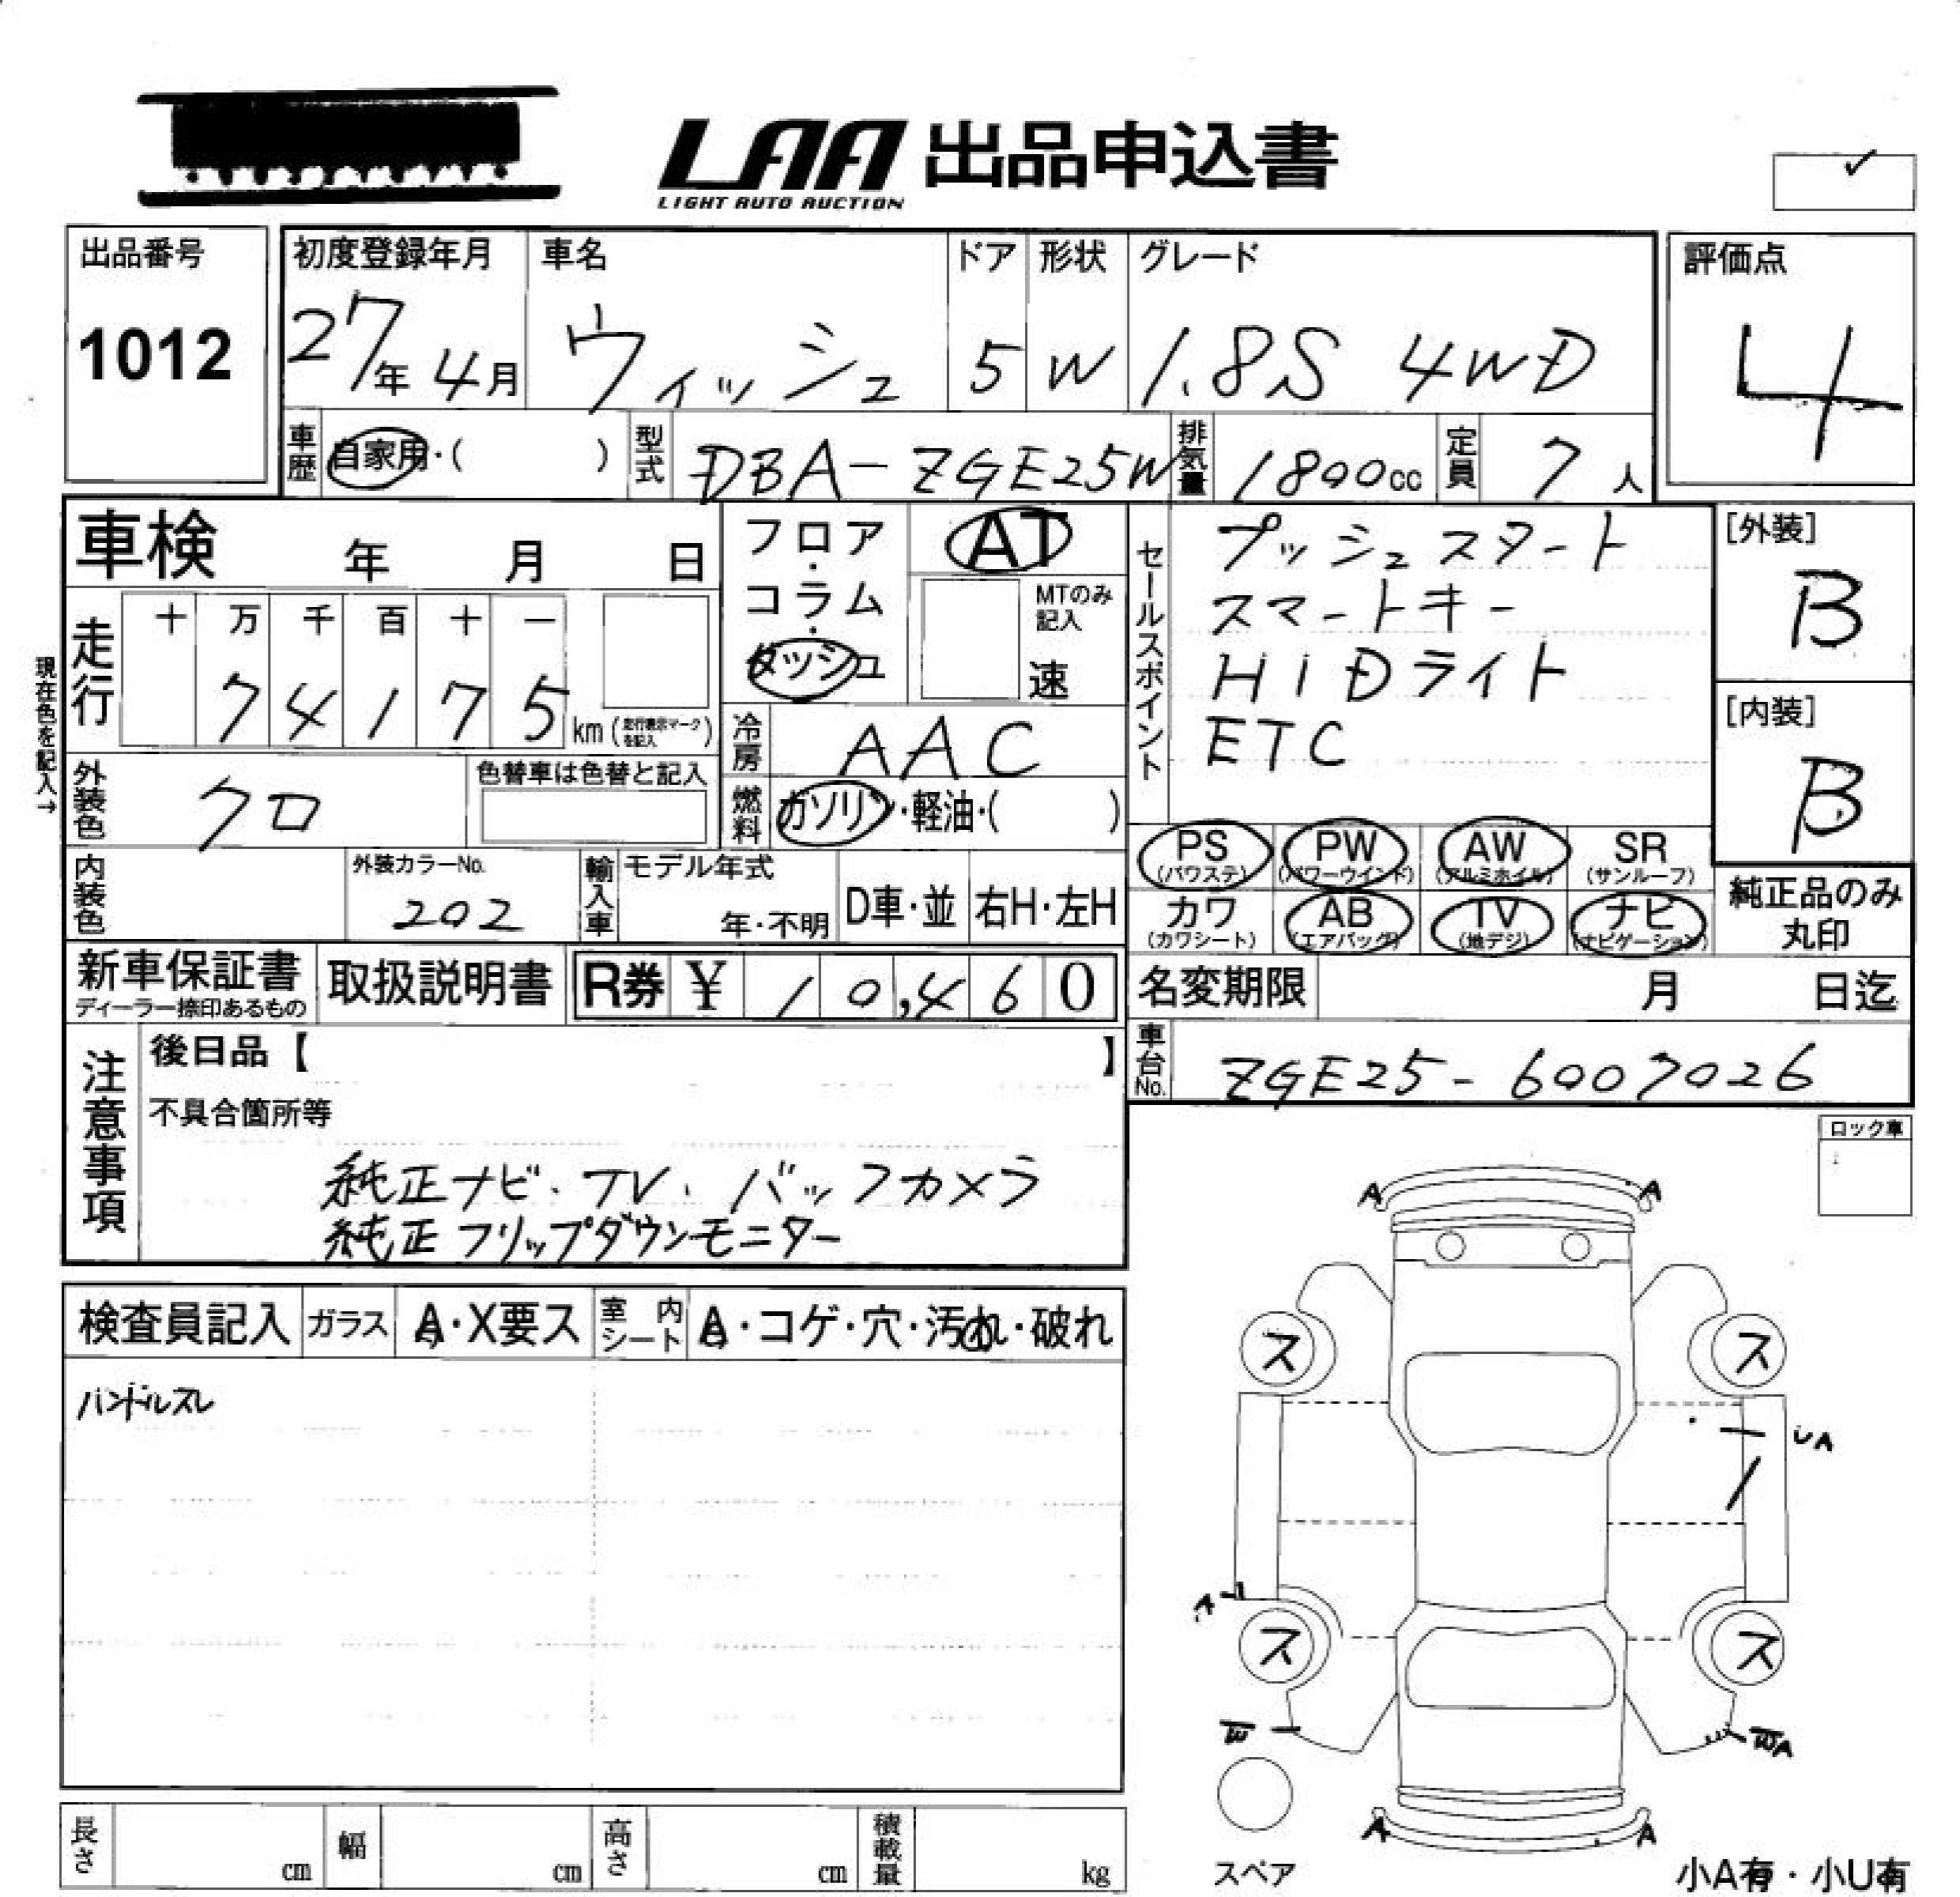 LAA 出品申込書
LIGHT AUTO AUCTION
出品番号
1012
初度登録年月
27年 4月
車名
ウィッシュ
ドア
5
形状
W
グレード
1.8S 4WD
評価点
4
車歴 自家用・( )
型式 DBA-ZGE25W
排気量 1800cc
定員 7人
車検 年 月 日
フロア・コラム・ダッシュ
AT
MTのみ記入
速
セールスポイント
プッシュスタート
スマートキー
HIDライト
ETC
[外装]
B
[内装]
B
現在色を記入→
走行
十 万 千 百 十 一
7 4 1 7 5 km (走行表示マークを記入)
冷房 AAC
外装色 クロ
色替車は色替と記入
燃料 ガソリン・軽油・( )
PS (パワステ)
PW (パワーウインド)
AW (アルミホイル)
SR (サンルーフ)
カワ (カワシート)
AB (エアバッグ)
TV (地デジ)
ナビ (ナビゲーション)
純正品のみ丸印
内装色
外装カラーNo.
202
輸入車
モデル年式
年・不明
D車・並
右H・左H
新車保証書
ディーラー捺印あるもの
取扱説明書
R券 ¥ 10,460
名変期限 月 日迄
車台No. ZGE25-6007026
注意事項
後日品【 】
不具合箇所等
純正ナビ、TV、バックカメラ
純正フリップダウンモニター
ロック車
検査員記入
ガラス A・X要ス
室内シート A・コゲ・穴・汚れ・破れ
ハンドルスレ
A A
ス ス
UA
A
ス ス
W WA
A A
スペア
小A有・小U有
長さ cm
幅 cm
高さ cm
積載量 kg